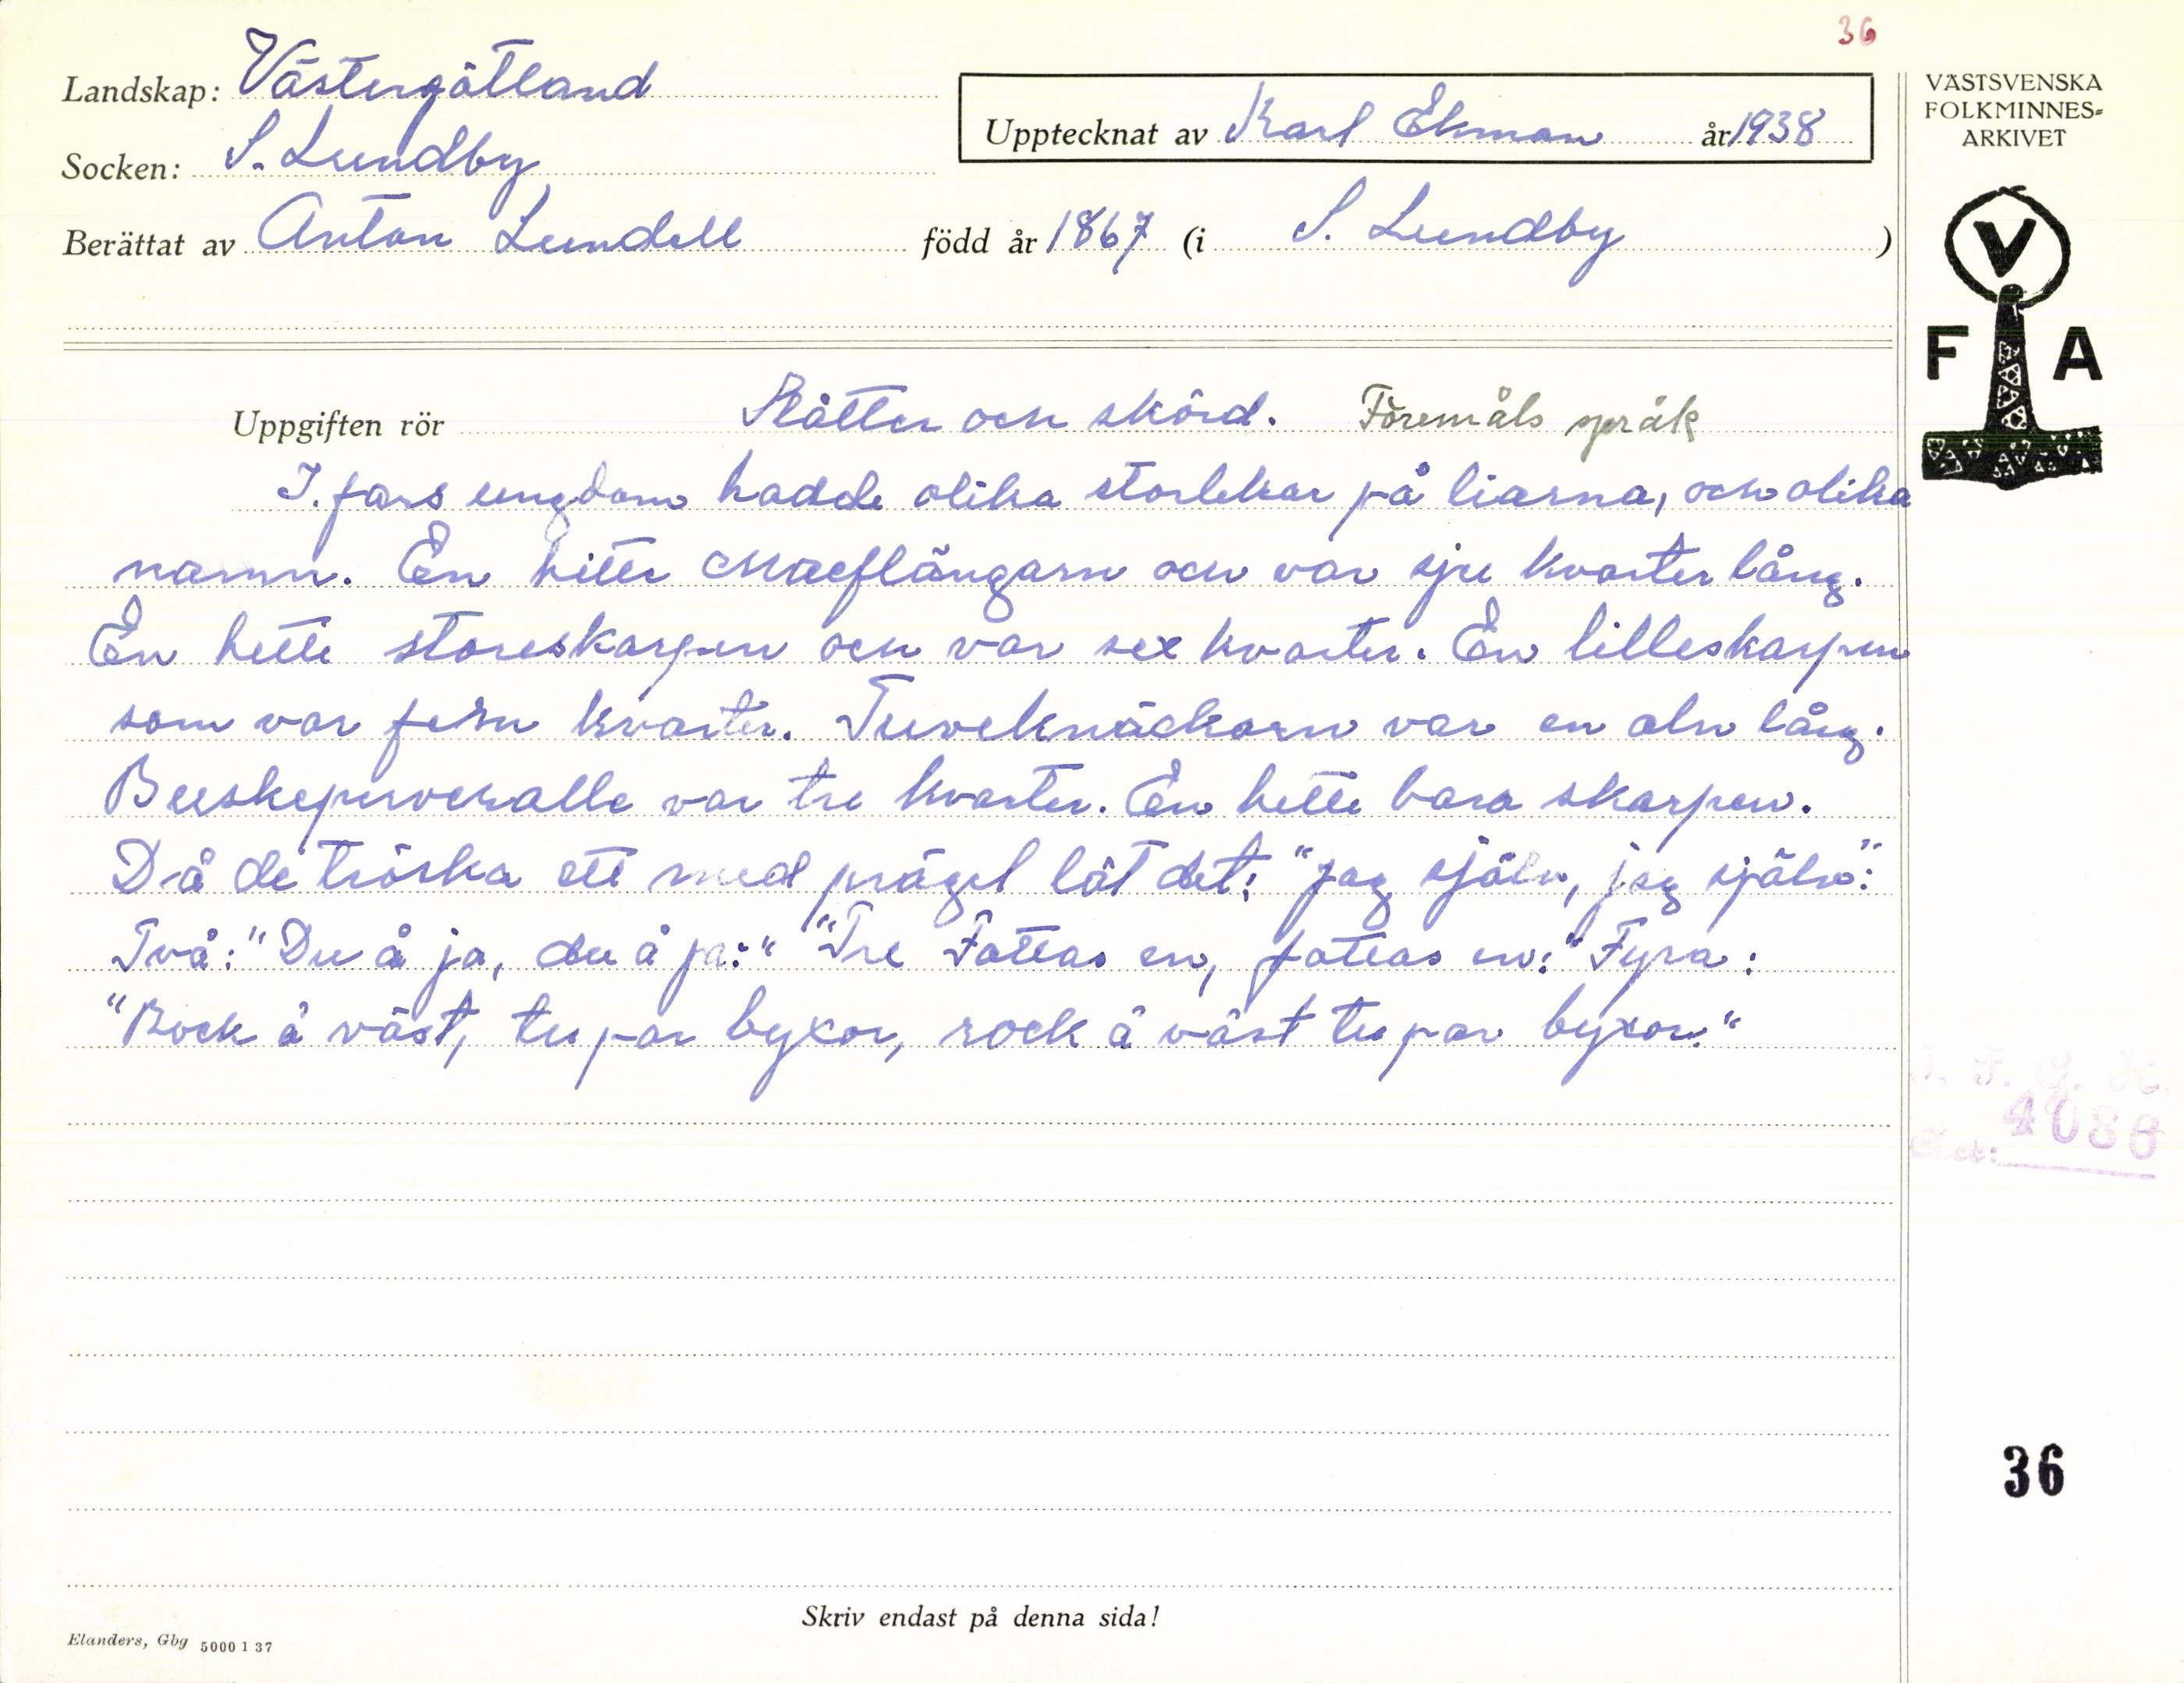 36
Landskap: Västergötland
Upptecknat av Karl Ekman år 1938
VÄSTSVENSKA
FOLKMINNES-
ARKIVET
Socken: S. Lundby
Berättat av Anton Lundell född år 1867 (i S. Lundby)
V
F A
Uppgiften rör Slåtter och skörd. Föremåls språk
I. fars ungdom hadde olika storlekar på liarna, och olika
namn. En hette och var sju kvarter lång.
En hette storeskarpen och var sex kvarter. En lilleskarpen
som var fem kvarter. Tuveknäckarn var en aln lång.
var tre kvarter. En hette bara skarpen.
Då de tröska ett med prägel lät det: "Jag själv, jag själv":
Två: "Du å ja, du å ja:" "Tre Fattas en, fattas en:" Fyra:
"Rock å väst, tu par byxor, rock å väst tu par byxor."
4086
36
Skriv endast på denna sida!
Elanders, Gbg 5000 1 37